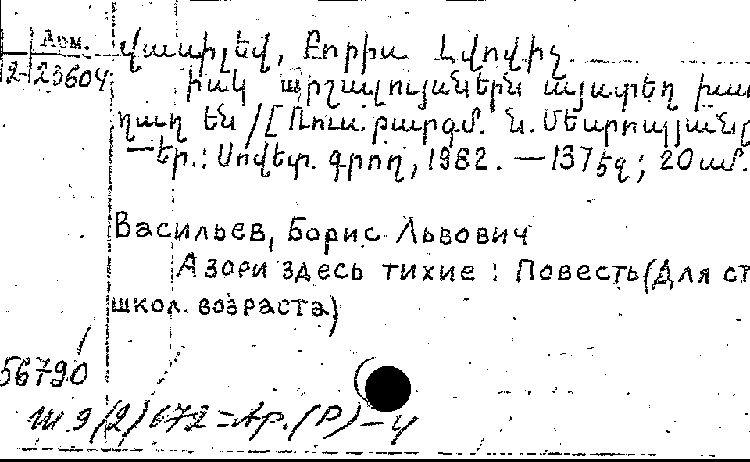 Арм.
2-23604
Վասիլև, Բորիս Լվովիչ
իսկ արշալույսներն այստեղ խա
ղաղ են /[Ռուս. թարգմ. Ն. Մեսրոպյանը
—Եր.: Սովետ. գրող, 1982. — 137 էջ; 20 սմ.
Васильев, Борис Львович
А зори здесь тихие : Повесть (Для ст
школ. возраста)
56790
Ш 9(2)672=Ар.(Р)-4